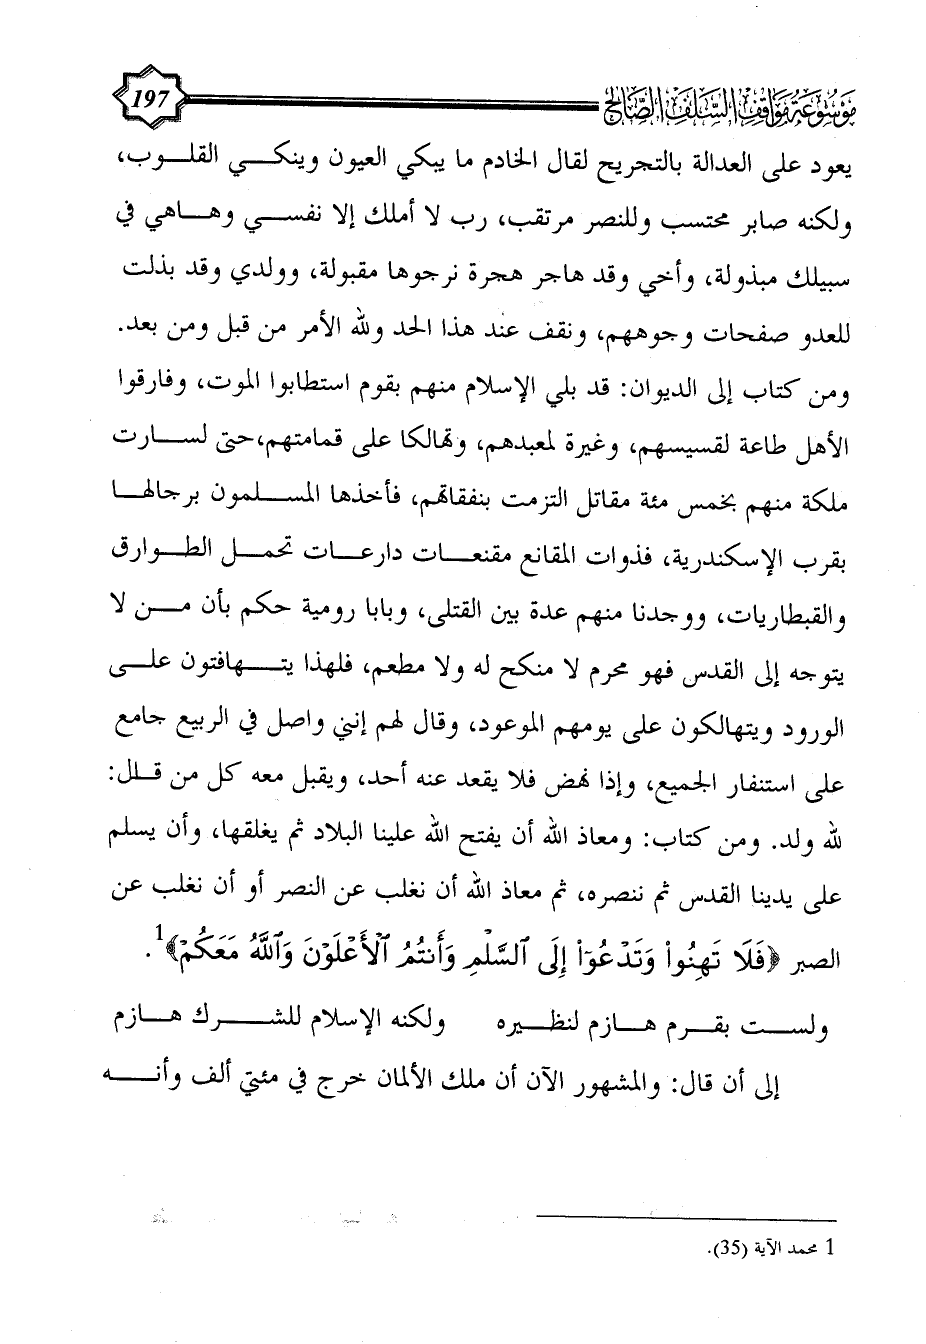 موسوعة مواقف السلف الصالح
197
يعود على العدالة بالتجريح لقال الخادم ما يبكي العيون وينكي القلوب،
ولكنه صابر محتسب وللنصر مرتقب، رب لا أملك إلا نفسي وهاهي في
سبيلك مبذولة، وأخي وقد هاجر هجرة نرجوها مقبولة، وولدي وقد بذلت
للعدو صفحات وجوههم، ونقف عند هذا الحد ولله الأمر من قبل ومن بعد.
ومن كتاب إلى الديوان: قد بلي الإسلام منهم بقوم استطابوا الموت، وفارقوا
الأهل طاعة لقسيسهم، وغيرة لمعبدهم، وتهالكا على قمامتهم،حتى لسارت
ملكة منهم بخمس مئة مقاتل التزمت بنفقاتهم، فأخذها المسلمون برجالها
بقرب الإسكندرية، فذوات المقانع مقنعات دارعات تحمل الطوارق
والقبطاريات، ووجدنا منهم عدة بين القتلى، وبابا رومية حكم بأن من لا
يتوجه إلى القدس فهو محرم لا منكح له ولا مطعم، فلهذا يتهافتون على
الورود ويتهالكون على يومهم الموعود، وقال لهم إنني واصل في الربيع جامع
على استنفار الجميع، وإذا نهض فلا يقعد عنه أحد، ويقبل معه كل من قال:
لله ولد. ومن كتاب: ومعاذ الله أن يفتح الله علينا البلاد ثم يغلقها، وأن يسلم
على يدينا القدس ثم ننصره، ثم معاذ الله أن نغلب عن النصر أو أن نغلب عن
الصبر ﴿فَلَا تَهِنُوا۟ وَتَدْعُوٓا۟ إِلَى ٱلسَّلْمِ وَأَنتُمُ ٱلْأَعْلَوْنَ وَٱللَّهُ مَعَكُمْ﴾1.
ولست بقرم هازم لنظيره ولكنه الإسلام للشرك هازم
إلى أن قال: والمشهور الآن أن ملك الألمان خرج في مئتي ألف وأنه
1 محمد الآية (35).